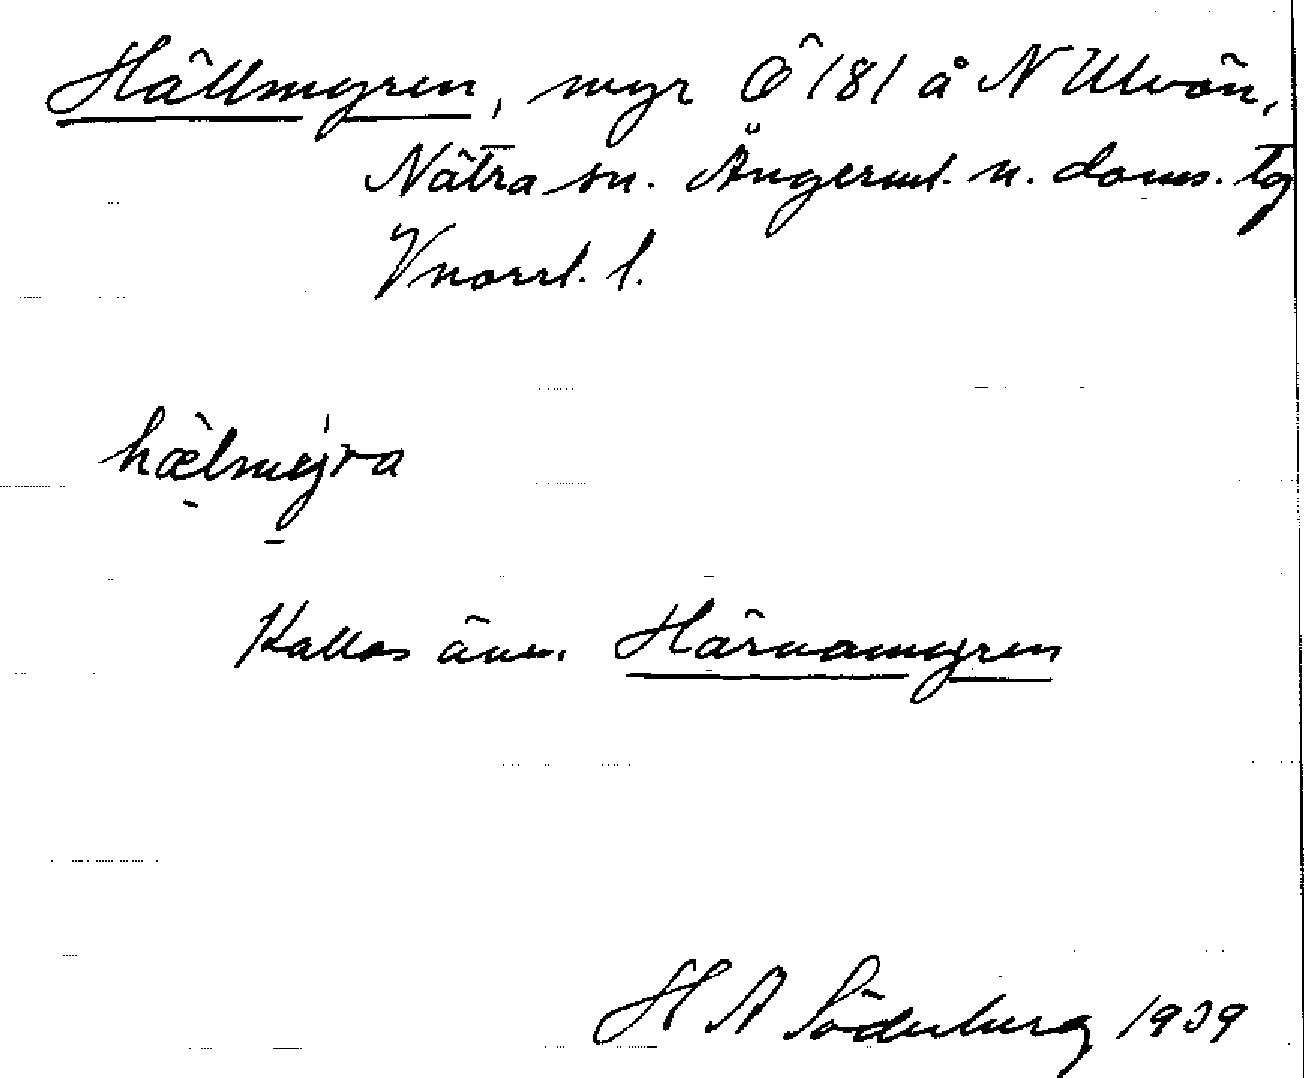 Hällmyren, myr Ö 181 å N Ulvön,
Nätra sn. Ångerml. n. doms. tg
Vnorrl. l.
hæ̀lmỳra
Kallas även Härnamyren
H A Söderberg 1939